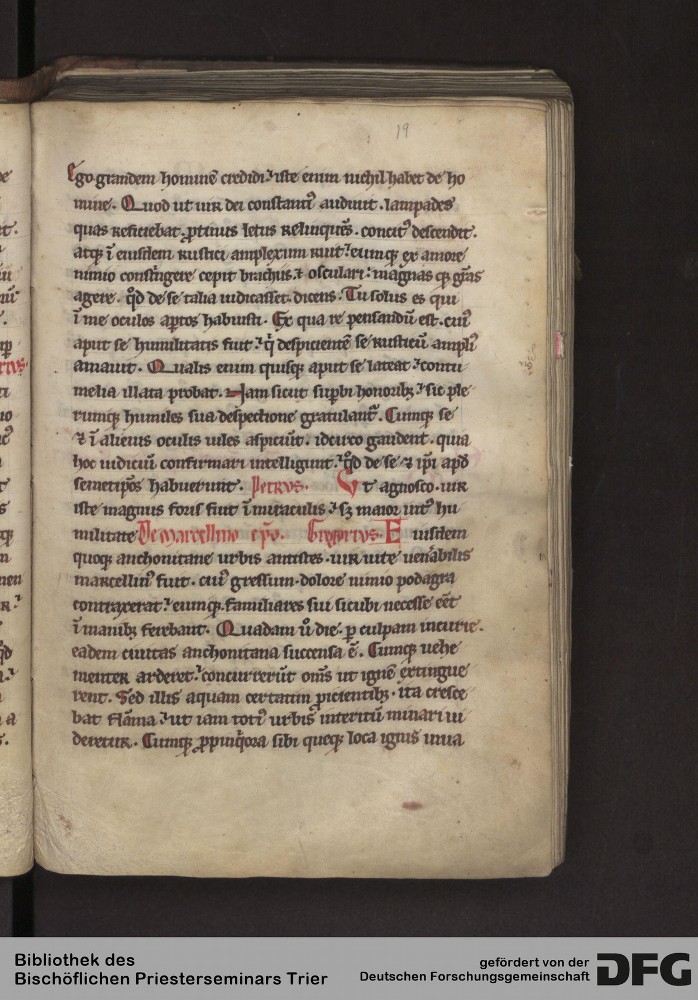 19
Ego grandem hominē credidi. iste enim nichil habet de ho
mine. Quod ut uir dei constantiꝰ audiuit. lampades
quas reficiebat. ꝓtinus letus relinquēs. concitꝰ descendit.
atqꝫ ī eiusdem rustici amplexum ruit. eumqꝫ ex amore
nimio constringere cepit brachiis. ⁊ osculari. magnas qꝫ grās
agere. qd̄ de se talia iudicasset. dicens. Tu solus es qui
ī me oculos aptos habuisti. Ex qua re pensandū est. cuiꝰ
aput se humilitatis fuit. q̄ despicientē se rusticū ampliꝰ
amauit. Qualis enim quisqꝫ aput se lateat. contu
melia illata probat. Nam sicut suꝑbi honoribꝫ. sic ple
rumqꝫ humiles sua despectione gratulant᷑. Cumqꝫ se
⁊ ī alienis oculis uiles aspiciūt. idcirco gaudent. quia
hoc iudiciū confirmari intelligunt. qd̄ de se ⁊ ip̄i apd̄
semetip̄os habuerunt. Petrus. Vt agnosco. uir
iste magnus foris fuit ī miraculis. sꝫ maior intꝰ hu
militate De Marcellino ep̄o. Gregorius. Eiusdem
quoqꝫ anchonitane urbis antistes. uir uite uenabilis
marcellinꝰ fuit. cuiꝰ gressum. dolore nimio podagra
contraxerat. eumqꝫ familiares sui sicubi necesse eēt
ī manibꝫ ferebant. Quadam u̾o die. ꝑ culpam incurie.
eadem ciuitas anchonitana succensa ē. Cumqꝫ uehe
menter arderet. concurrerūt om̄s ut ignē extingue
rent. Sed illis aquam certatim ꝓicientibꝫ. ita cresce
bat flāma. ut iam totiꝰ urbis interitū minari ui
deretur. Cumqꝫ ꝓpinqͥora sibi queqꝫ loca ignis inua
Bibliothek des
Bischöflichen Priesterseminars Trier
gefördert von der
Deutschen Forschungsgemeinschaft
DFG